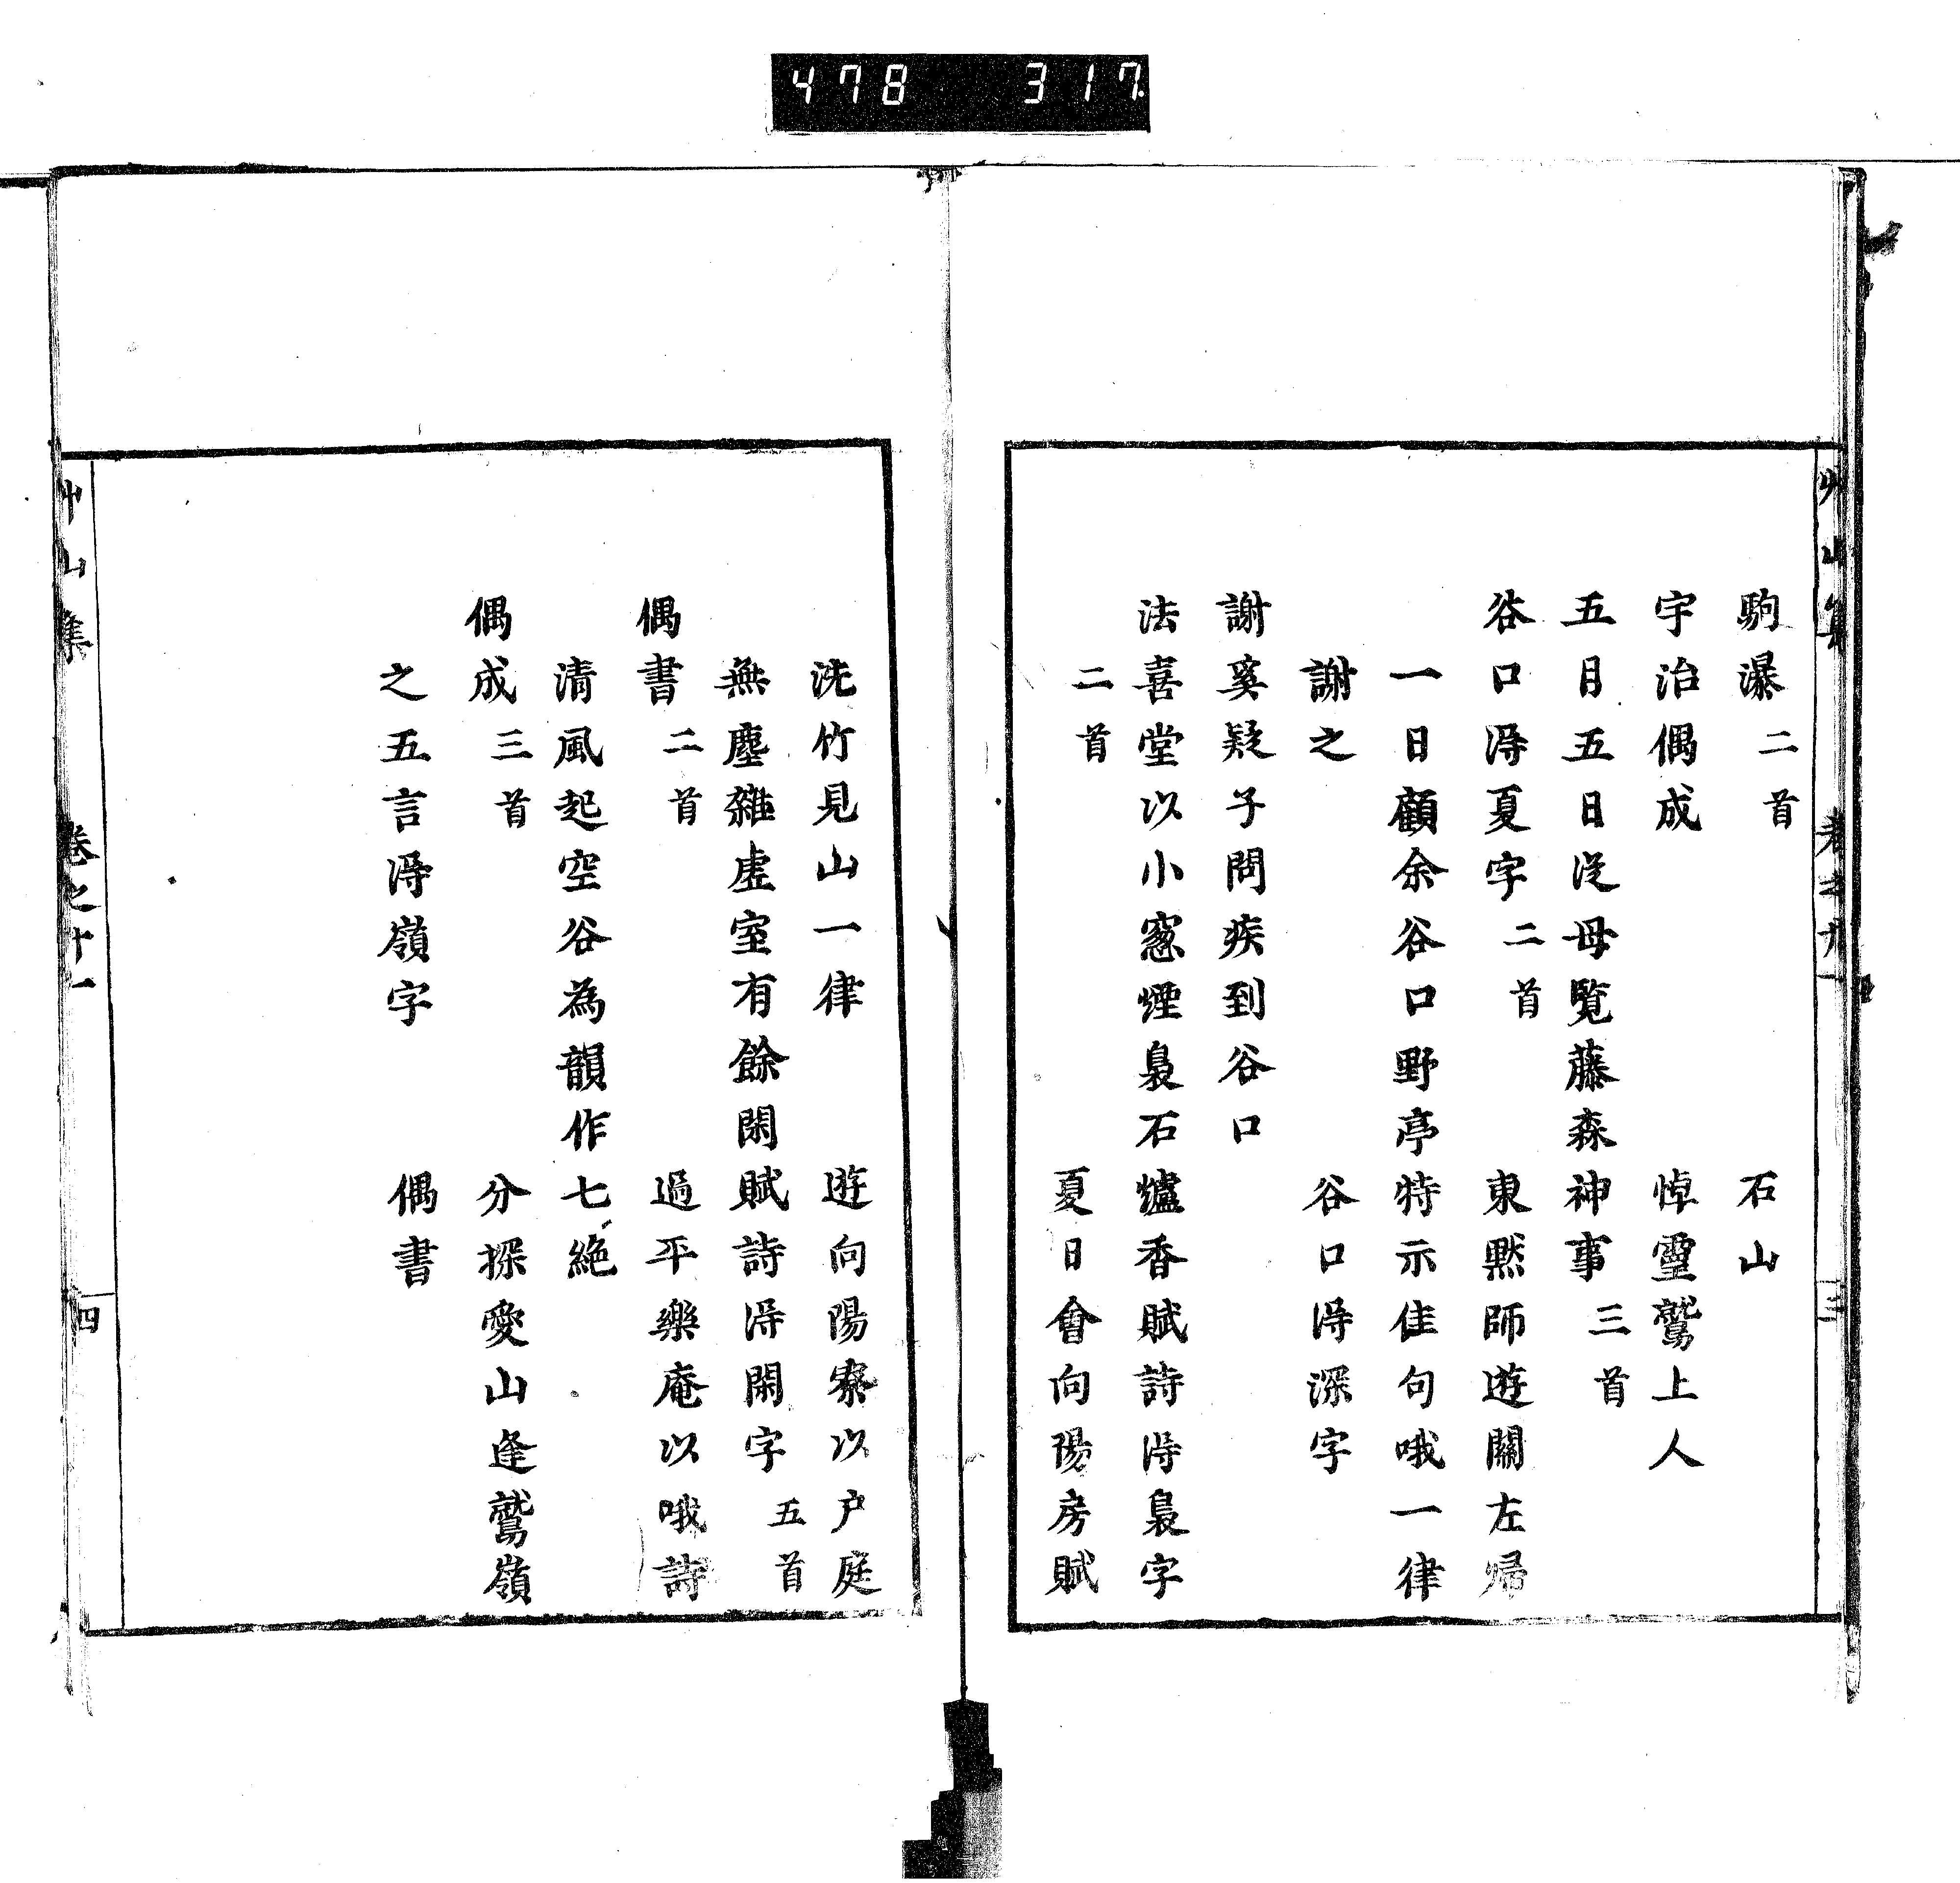 478 317.
駒瀑二首 石山
宇治偶成 悼靈鷲上人
五月五日從母覧藤森神事三首
谷口得夏字二首 東黙師遊關左歸
一日顧余谷口野亭特示佳句哦一律
謝之 谷口得深字
謝奚疑子問疾到谷口
法喜堂以小窻煙裊石爐香賦詩得裊字
二首 夏日會向陽房賦
洗竹見山一律 遊向陽寮以户庭
無塵雜虚室有餘閑賦詩得閑字五首
偶書二首 過平樂庵以哦詩
清風起空谷為韻作七絶
偶成三首 分探愛山逢鷲嶺
之五言得嶺字 偶書
艸山集 卷之十一 四